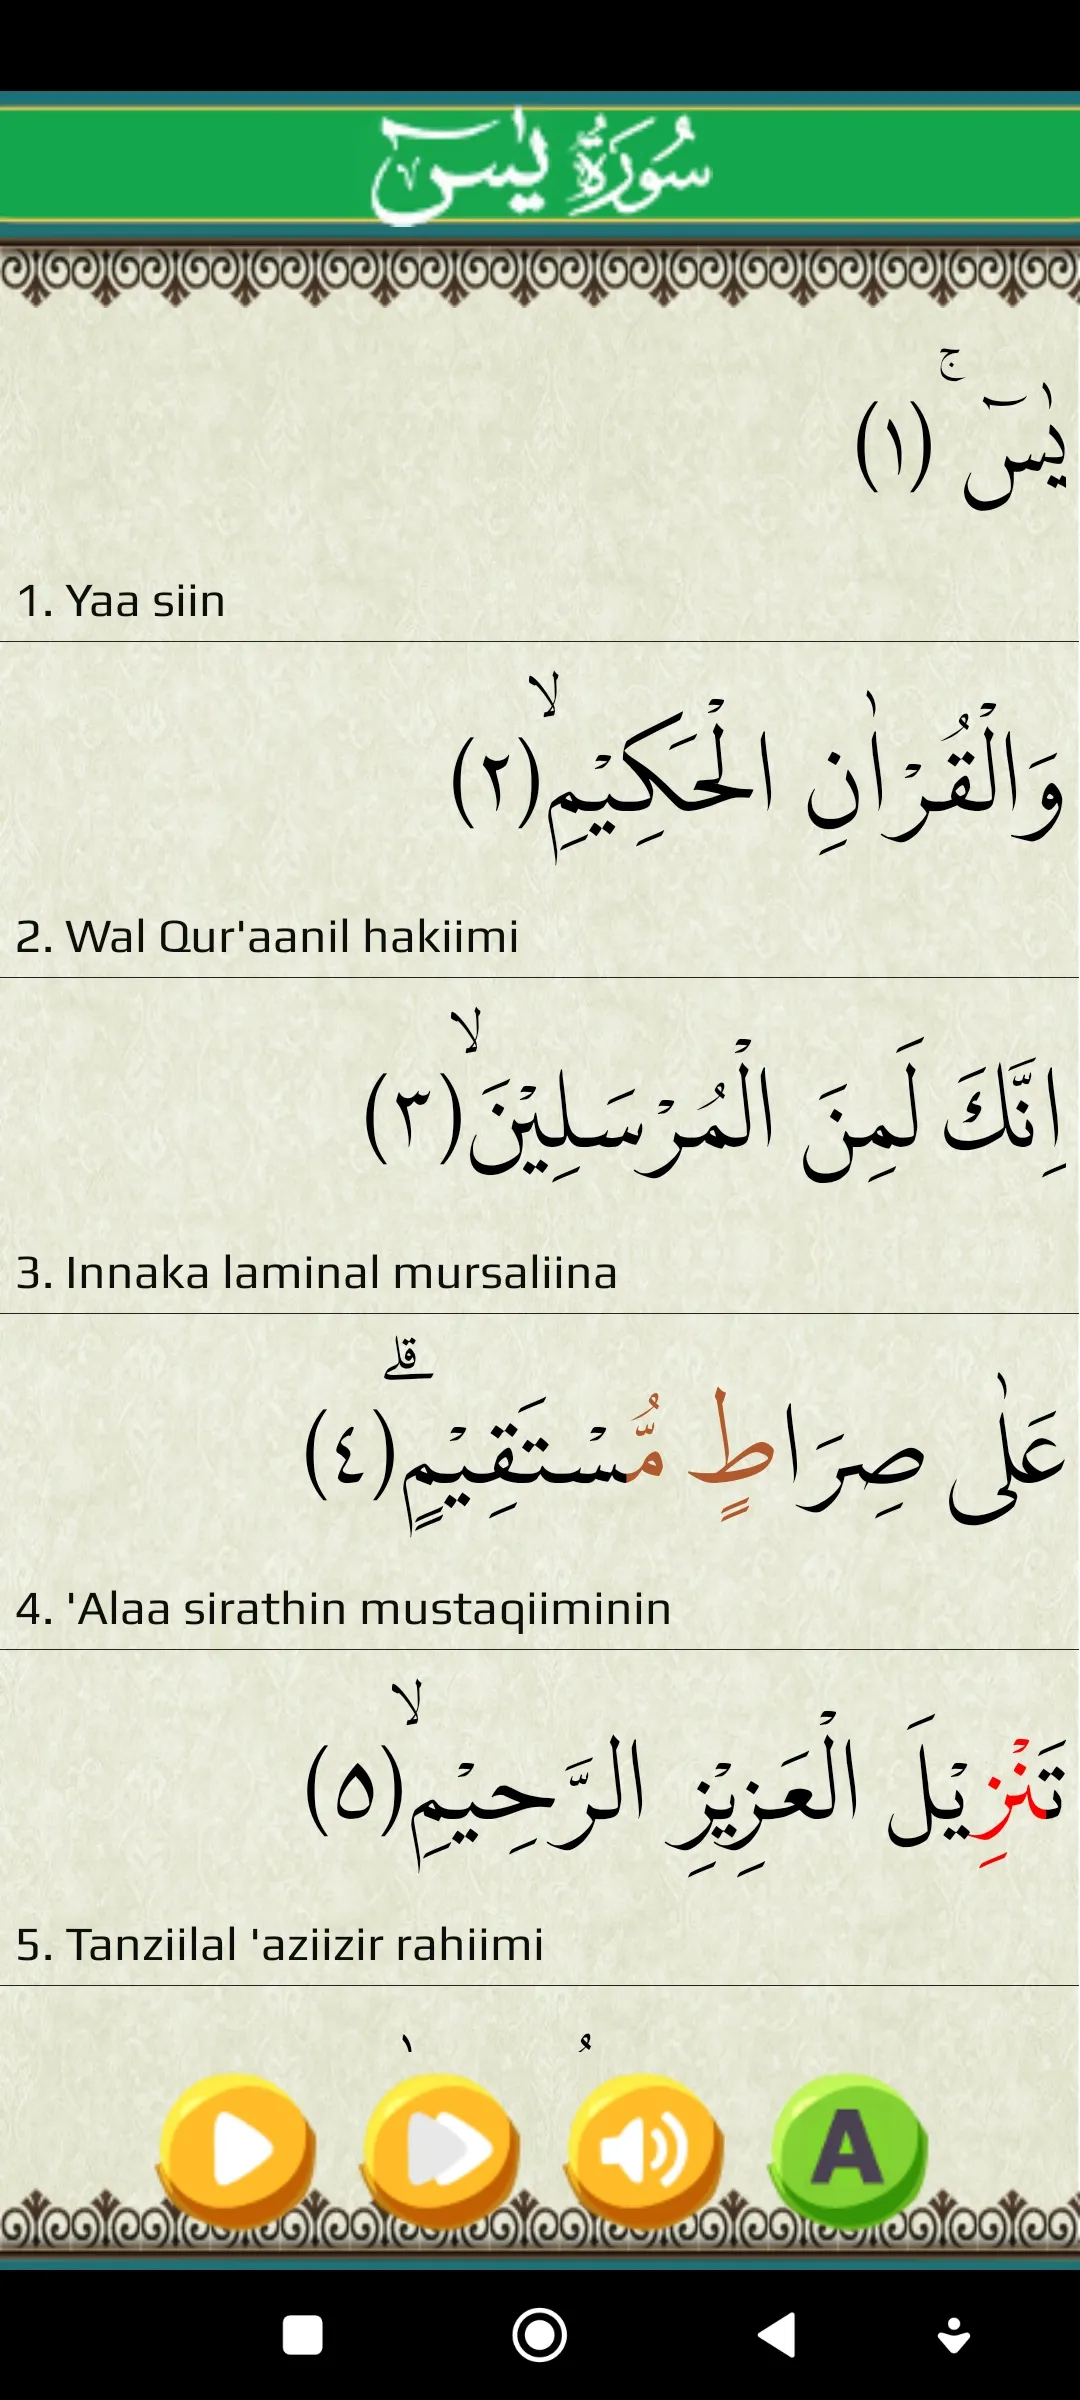 سُورَةُ يٰسٓ
يٰسٓ ۚ (١)
1. Yaa siin
وَالْقُرْاٰنِ الْحَكِيْمِۙ (٢)
2. Wal Qur'aanil hakiimi
اِنَّكَ لَمِنَ الْمُرْسَلِيْنَۙ (٣)
3. Innaka laminal mursaliina
عَلٰى صِرَاطٍ مُّسْتَقِيْمٍۗ (٤)
4. 'Alaa sirathin mustaqiiminin
تَنْزِيْلَ الْعَزِيْزِ الرَّحِيْمِۙ (٥)
5. Tanziilal 'aziizir rahiimi
A